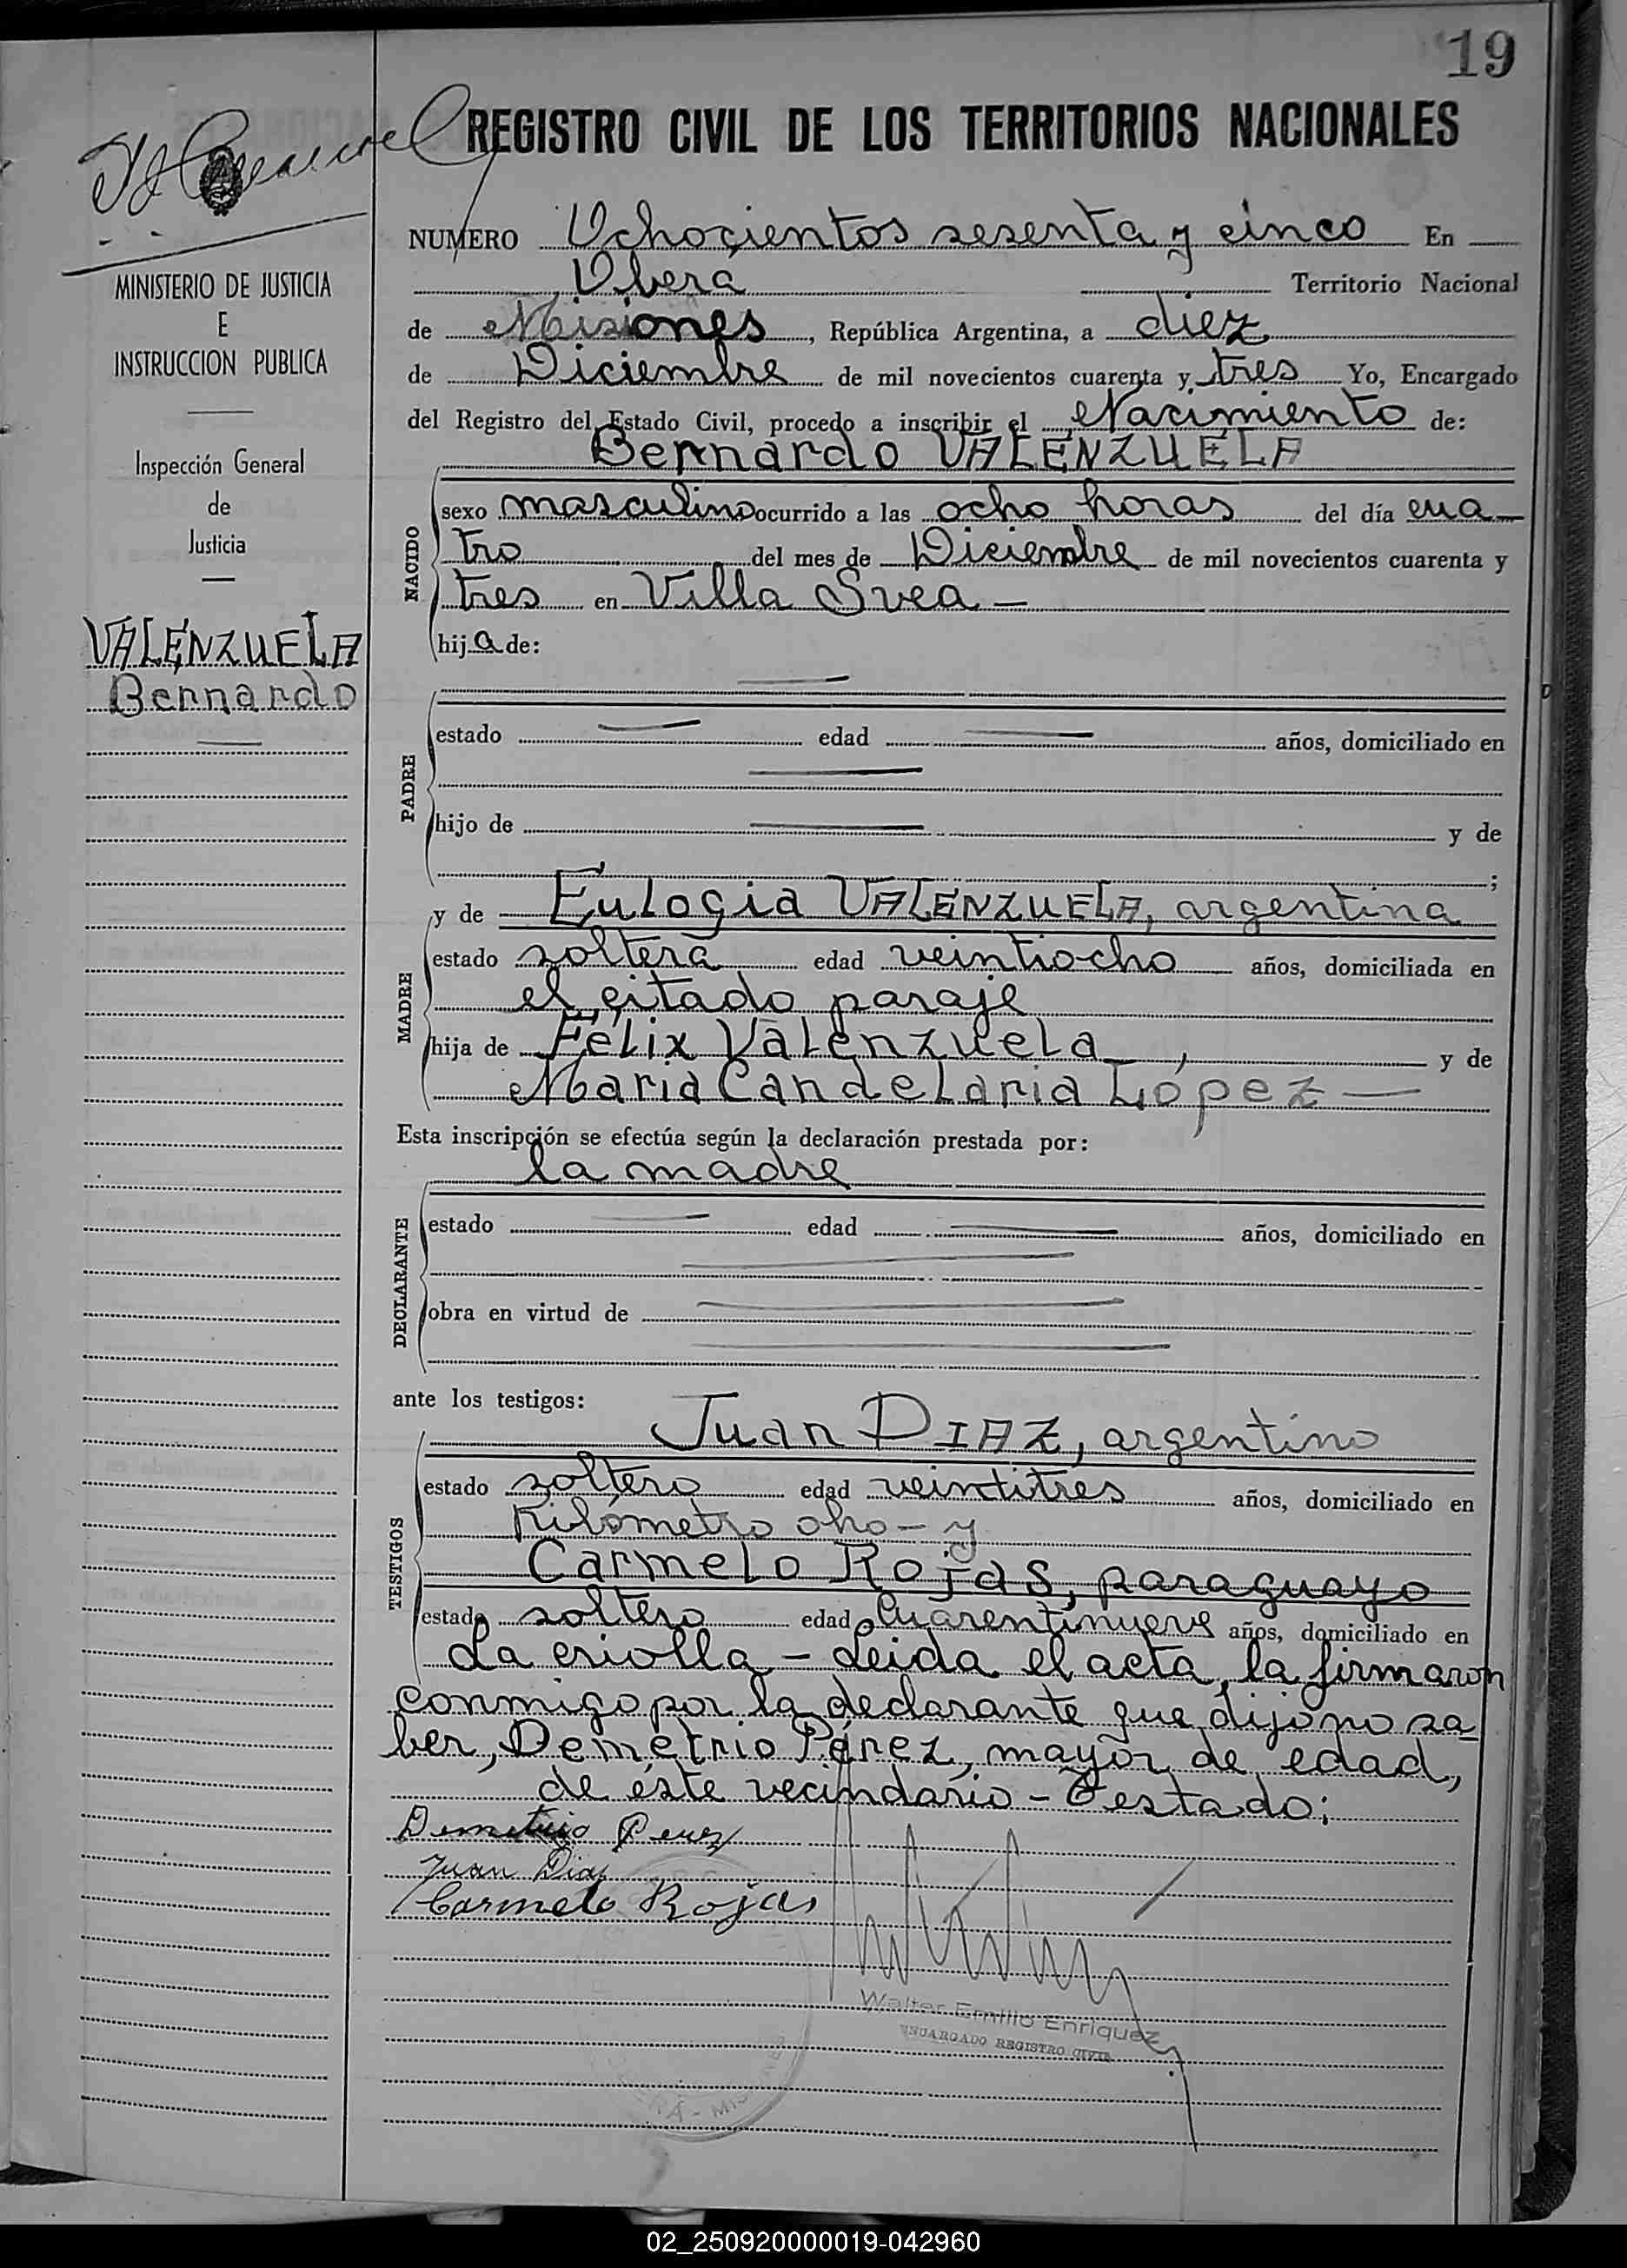 19
REGISTRO CIVIL DE LOS TERRITORIOS NACIONALES
MINISTERIO DE JUSTICIA
E
INSTRUCCION PUBLICA
Inspección General
de
Justicia
VALENZUELA
Bernardo
NUMERO Ochocientos sesenta y cinco En
Obera Territorio Nacional
de Misiones, República Argentina, a diez
de Diciembre de mil novecientos cuarenta y tres Yo, Encargado
del Registro del Estado Civil, procedo a inscribir el Nacimiento de:
Bernardo VALENZUELA
NACIDO
sexo masculino ocurrido a las ocho horas del día cua-
tro del mes de Diciembre de mil novecientos cuarenta y
tres en Villa Svea —
hijo de:
PADRE
estado — edad — años, domiciliado en
hijo de — y de
;
MADRE
y de Eulogia VALENZUELA, argentina
estado soltera edad veintiocho años, domiciliada en
el citado paraje
hija de Félix Valenzuela, y de
Maria Candelaria López —
Esta inscripción se efectúa según la declaración prestada por:
la madre
DECLARANTE
estado — edad — años, domiciliado en
obra en virtud de —
ante los testigos:
TESTIGOS
Juan DIAZ, argentino
estado soltero edad veintitres años, domiciliado en
Kilómetro oho - y
Carmelo Rojas, paraguayo
estado soltero edad cuarentinueve años, domiciliado en
La criolla - Leida el acta, la firmaron
conmigo por la declarante que dijo no sa
ber, Demetrio Pérez, mayor de edad,
de éste vecindario - Testado:
Demetrio Perez
Juan Diaz
Carmelo Rojas
Walter Emilio Enriquez
ENCARGADO REGISTRO CIVIL
02_250920000019-042960